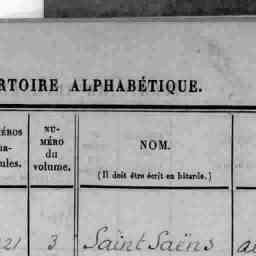 RTOIRE ALPHABÉTIQUE.
ÉROS
ules.
NU-
MÉRO
du
volume.
NOM.
(Il doit être écrit en bâtarde.)
21 3 Saint Saëns